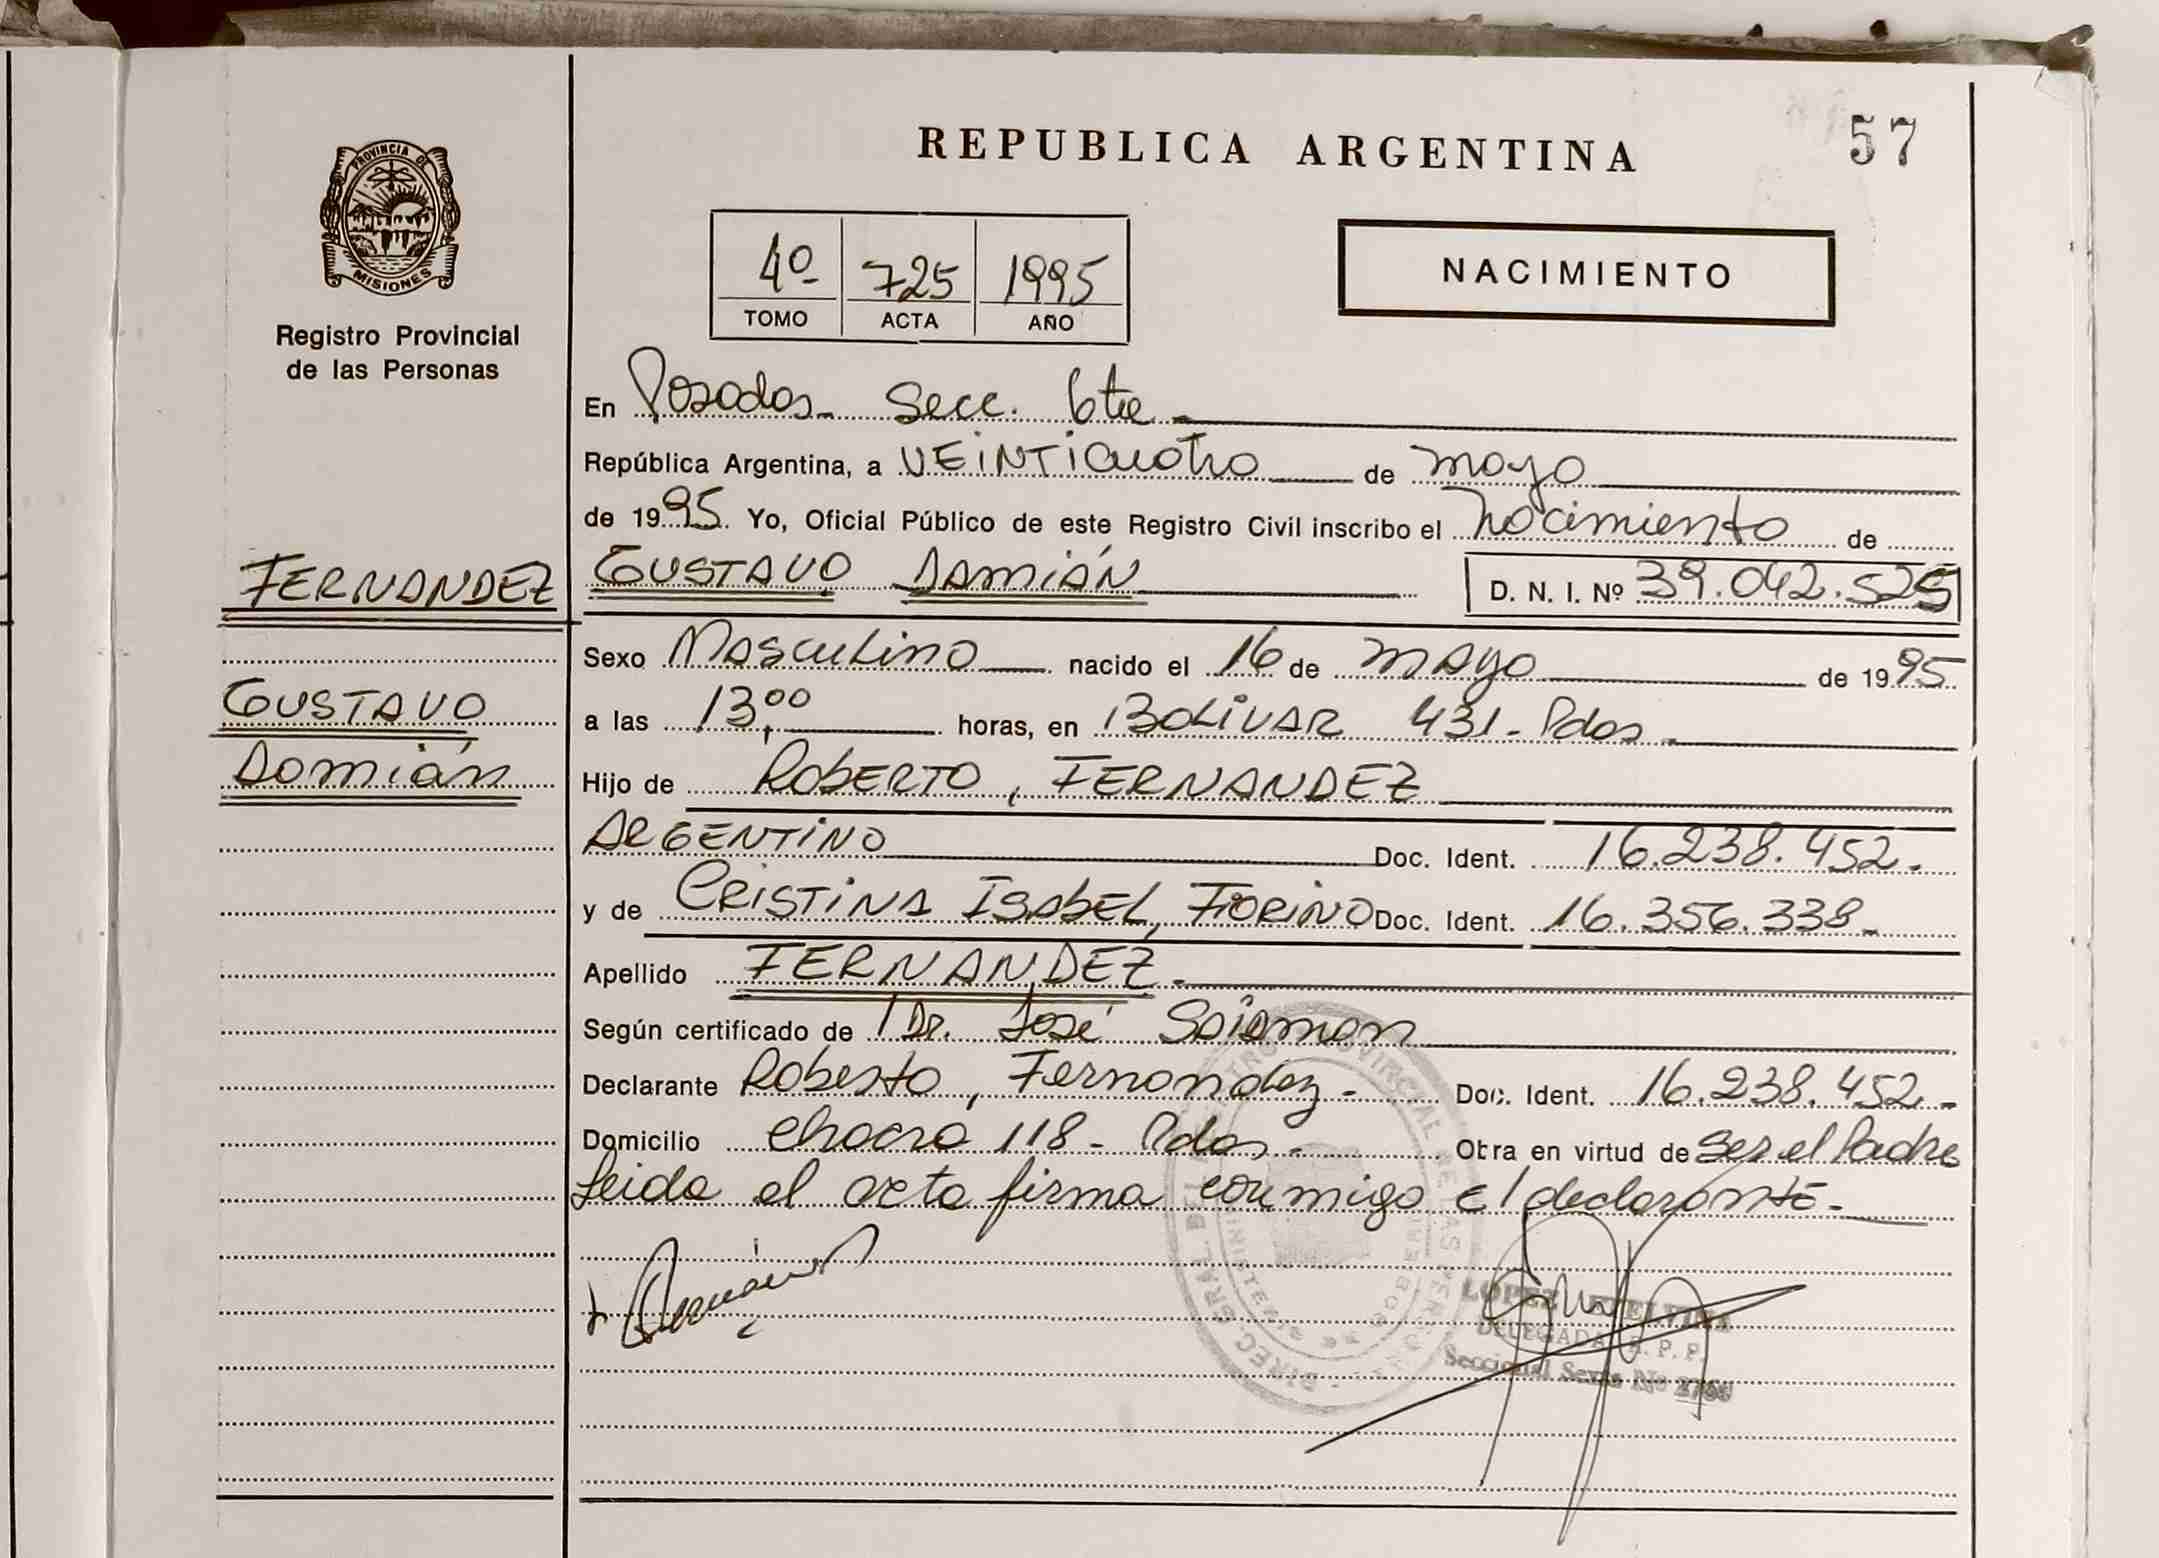 57
REPUBLICA ARGENTINA
PROVINCIA DE
MISIONES
Registro Provincial
de las Personas
4º 725 1995
TOMO ACTA AÑO
NACIMIENTO
En Posadas - Secc. 6ta -
República Argentina, a VEINTICUATRO de mayo
de 1995. Yo, Oficial Público de este Registro Civil inscribo el nacimiento de
FERNANDEZ
GUSTAVO DAMIÁN D. N. I. Nº 39.042.525
Sexo Masculino nacido el 16 de mayo de 1995
GUSTAVO
a las 13,00 horas, en BOLIVAR 431 - Pdas -
Damián
Hijo de ROBERTO, FERNANDEZ
ARGENTINO Doc. Ident. 16.238.452.
y de CRISTINA ISABEL, FIORINO Doc. Ident. 16.356.338 -
Apellido FERNANDEZ -
Según certificado de Dr. José
Declarante Roberto, Fernandez - Doc. Ident. 16.238.452 -
Domicilio chacra 118 - Pdas - Obra en virtud de ser el Padre
Leida el acta firma conmigo el declarante -
LOPEZ ETELVINA
DELEGADA R. P. P.
Seccional Sexta Nº